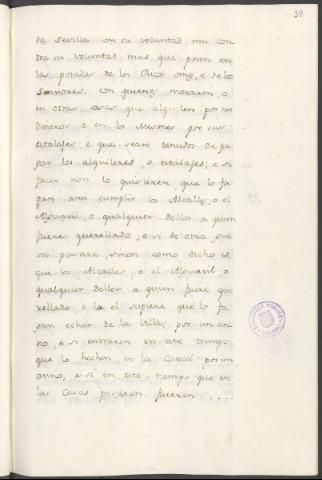 39
de Sevilla con su voluntad, nin con
tra su voluntad mas que posen en
las posadas de los Ricos omes, e de los
Sennores, con quienes moraren, o
en otras casas que alquilen por sus
dineros, o en los Mesones por sus
estalajes, e que sean tenudos de pa
gar los alquileres, o estalajes; e si
facer non lo quisieren, que lo fa
gan ansi cumplir los Alcalles, o el
Alguacil, o qualquier dellos a quien
fuere querellado, e si de otra gui
sa posare, sinon como dicho es,
que los Alcalles, o el Alguacil, o
qualquier dellos a quien fuere que
rellado, o la el supiere que lo fa
gan echar de la Villa, por un an
no, e si entraren en este tiempo
que lo hechen en la Carcel por un
anno, e si en este tiempo que en
las Casas posaren, fueren . . . .